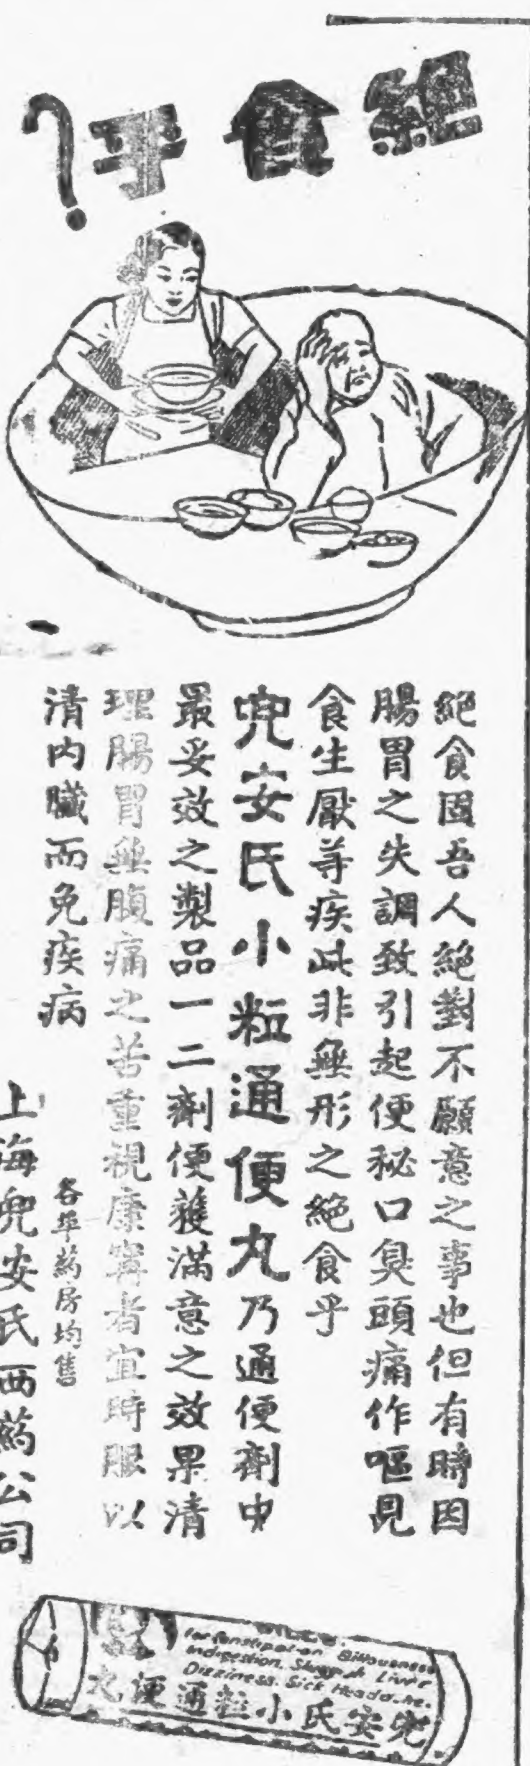 絕食乎?
絕食固吾人絕對不願意之事也但有時因
腸胃之失調致引起便秘口臭頭痛作嘔見
食生厭等疾此非無形之絕食乎
兜安氏小粒通便丸乃通便劑中
最妥效之製品一二劑便獲滿意之效果清
理腸胃無腹痛之苦重視康寧者宜時服以
清內臟而免疾病
各埠藥房均售
上海兜安氏西藥公司
for Constipation Biliousness
Indigestion, Sluggish Liver
Dizziness. Sick Headache.
兜安氏小粒通便丸